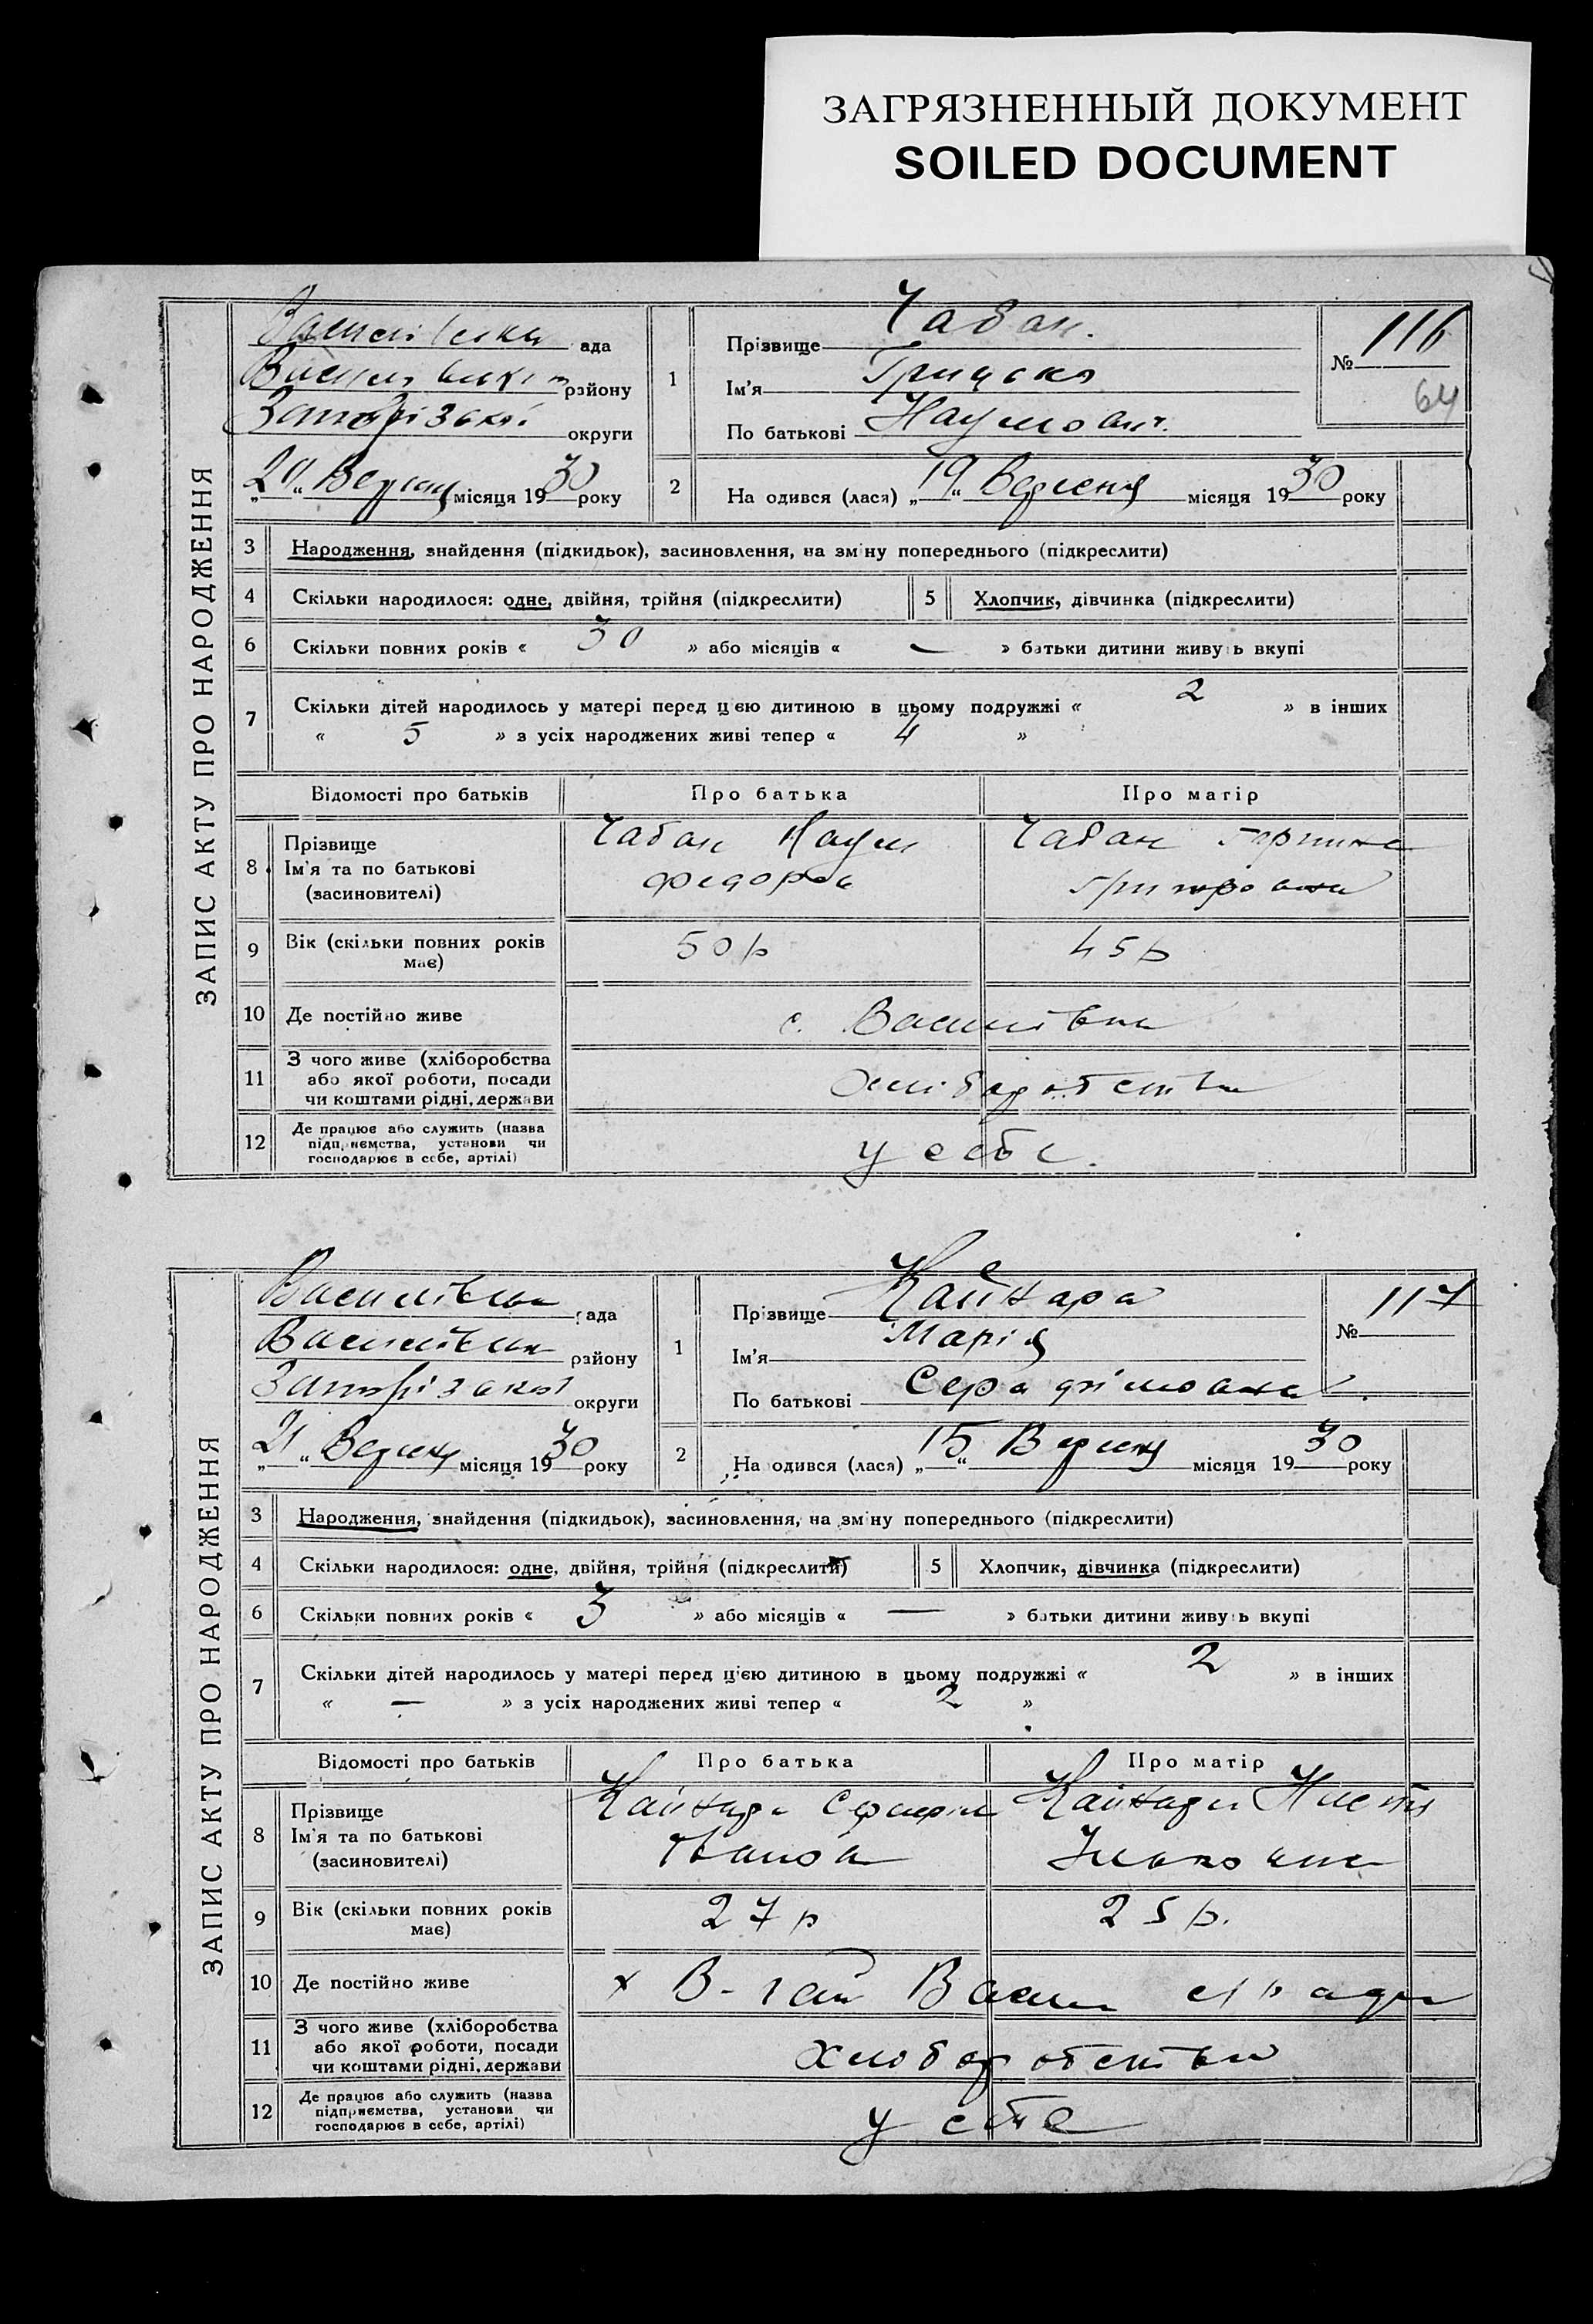 ЗАГРЯЗНЕННЫЙ ДОКУМЕНТ
SOILED DOCUMENT
ЗАПИС АКТУ ПРО НАРОДЖЕННЯ
ада
району
Запорізької округи
"20" Вересня місяця 1930 року
1
Прізвище Чабан.
Ім'я Грицько
По батькові Наумович.
№ 116
64
2
На одився (лася) "19" Вересня місяця 1930 року
3 Народження, знайдення (підкидьок), засиновлення, на зм ну попереднього (підкреслити)
4 Скільки народилося: одне, двійня, трійня (підкреслити) 5 Хлопчик, дівчинка (підкреслити)
6 Скільки повних років « 30 » або місяців « — » батьки дитини живу ь вкупі
7 Скільки дітей народилось у матері перед ц єю дитиною в цьому подружжі « 2 » в інших
« 5 » з усіх народжених живі тепер « 4 »
Відомості про батьків Про батька Про матір
8 Прізвище
Ім'я та по батькові
(засиновителі)
Чабан Наум
Федоров
Чабан
9 Вік (скільки повних років має) 50 р 45 р
10 Де постійно живе с. Василівка
11 З чого живе (хліборобства або якої роботи, посади чи коштами рідні, держави хліборобства
12 Де працює або служить (назва підприємства, установи чи господарює в себе, артілі) у себе.
ЗАПИС АКТУ ПРО НАРОДЖЕННЯ
Василівська рада
Василівськ району
Запорізької округи
"21" Вересня місяця 1930 року
1
Прізвище Кайкара
Ім'я Марія
По батькові Серафімовна
№ 117
2
На одився (лася) "15" Вересня місяця 1930 року
3 Народження, знайдення (підкидьок), засиновлення, на зм ну попереднього (підкреслити)
4 Скільки народилося: одне, двійня, трійня (підкреслити) 5 Хлопчик, дівчинка (підкреслити)
6 Скільки повних років « 3 » або місяців « — » батьки дитини живу ь вкупі
7 Скільки дітей народилось у матері перед ц'єю дитиною в цьому подружжі « 2 » в інших
« — » з усіх народжених живі тепер « 2 »
Відомості про батьків Про батька Про матір
8 Прізвище
Ім'я та по батькові
(засиновителі)
Кайкара
Іванов
Кайкара
9 Вік (скільки повних років має) 27 р 25 р.
10 Де постійно живе х В-гай Васил с/ради
11 З чого живе (хліборобства або якої роботи, посади чи коштами рідні, держави хліборобства
12 Де працює або служить (назва підприємства, установи чи господарює в себе, артілі) у себе